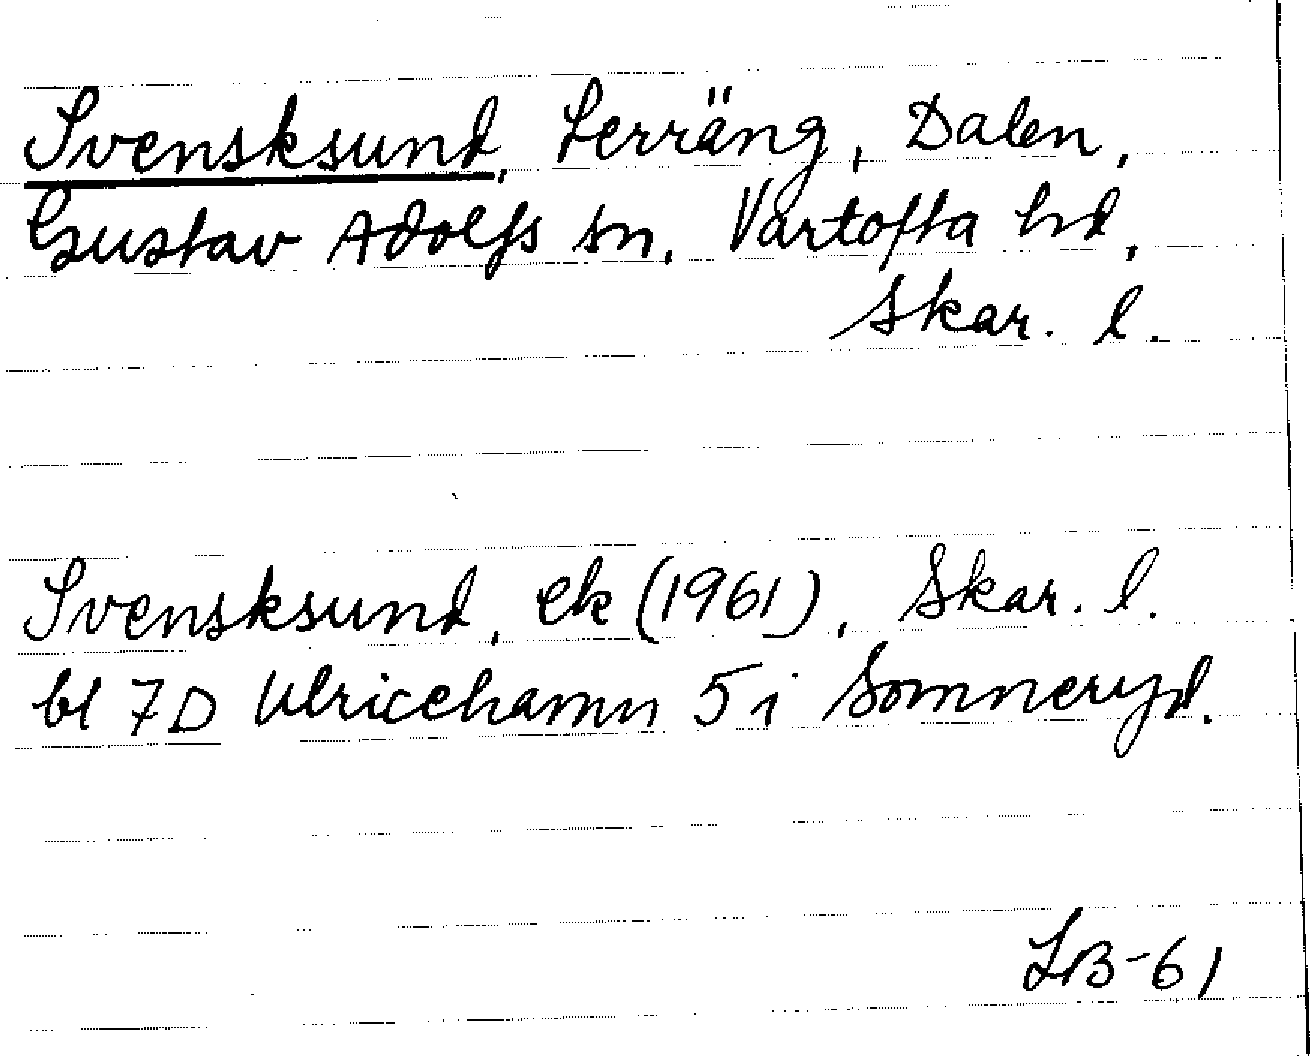 Svensksund, Lerräng, Dalen,
Gustav Adolfs sn, Vartofta hd,
Skar. l.
Svensksund, ek (1961), Skar. l.
bl 7D Ulricehamn 5 i Somneryd.
LB-61